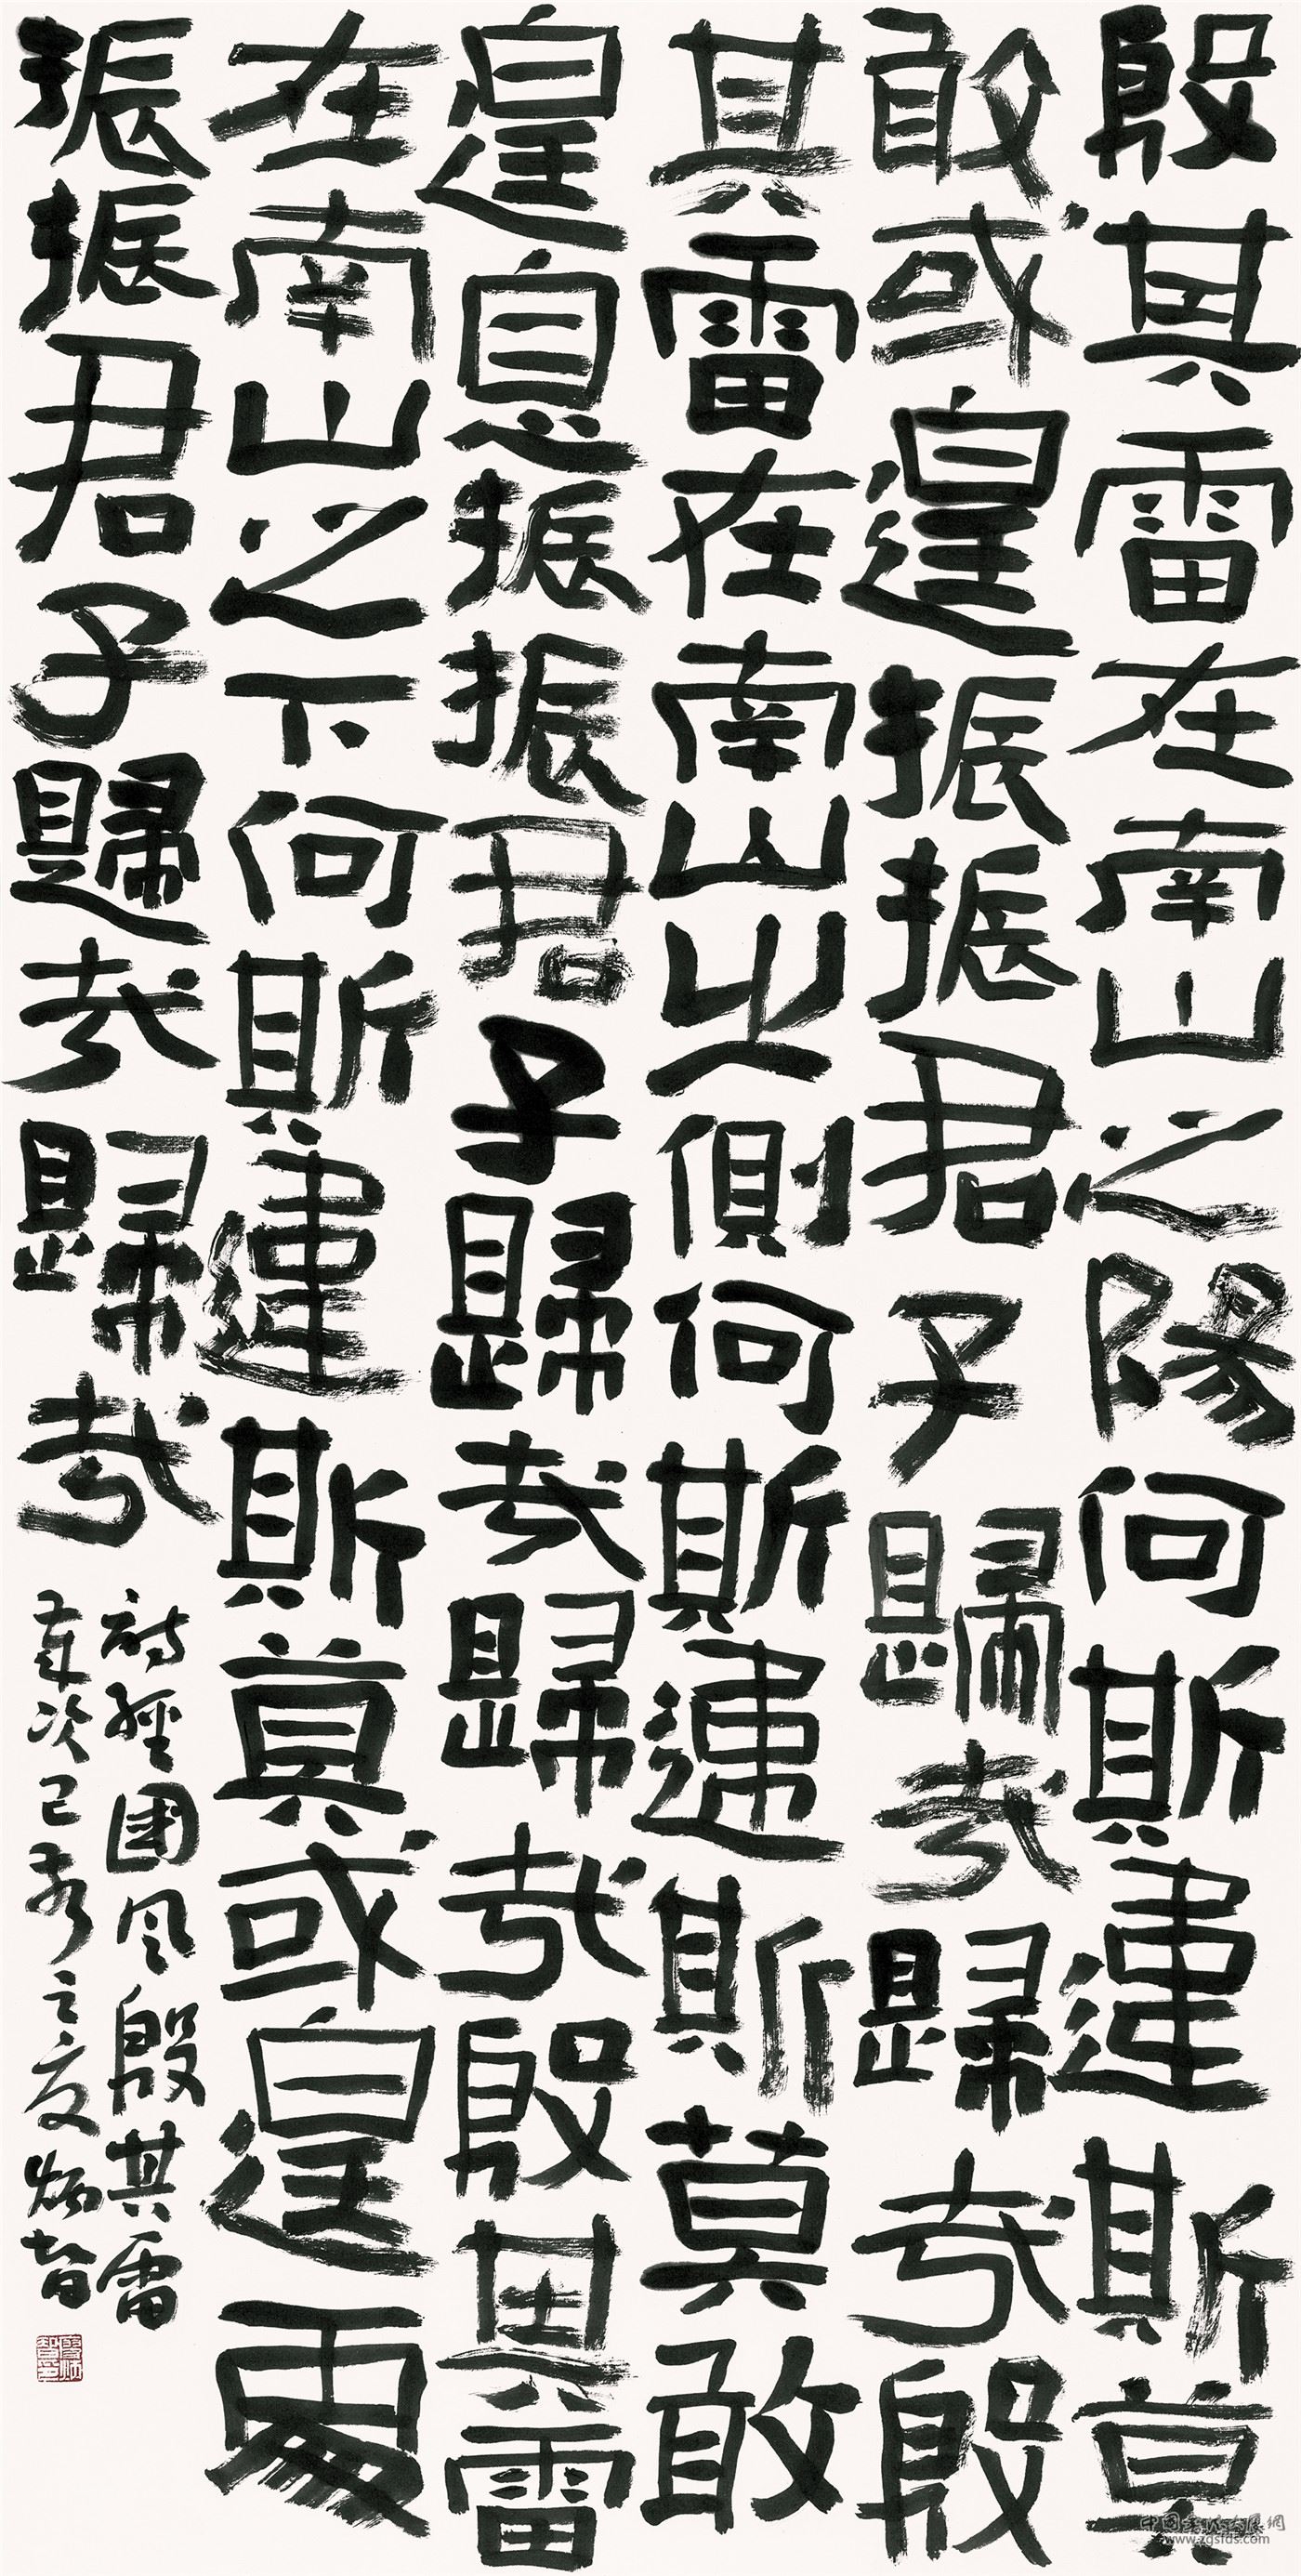 殷其雷在南山之陽何斯違斯莫
敢或遑振振君子歸哉歸哉殷
其雷在南山之側何斯違斯莫敢
遑息振振君子歸哉歸哉殷其雷
在南山之下何斯違斯莫或遑處
振振君子歸哉歸哉
詩經國風殷其雷
歲次己亥之夏炳智
www.zgsfds.com